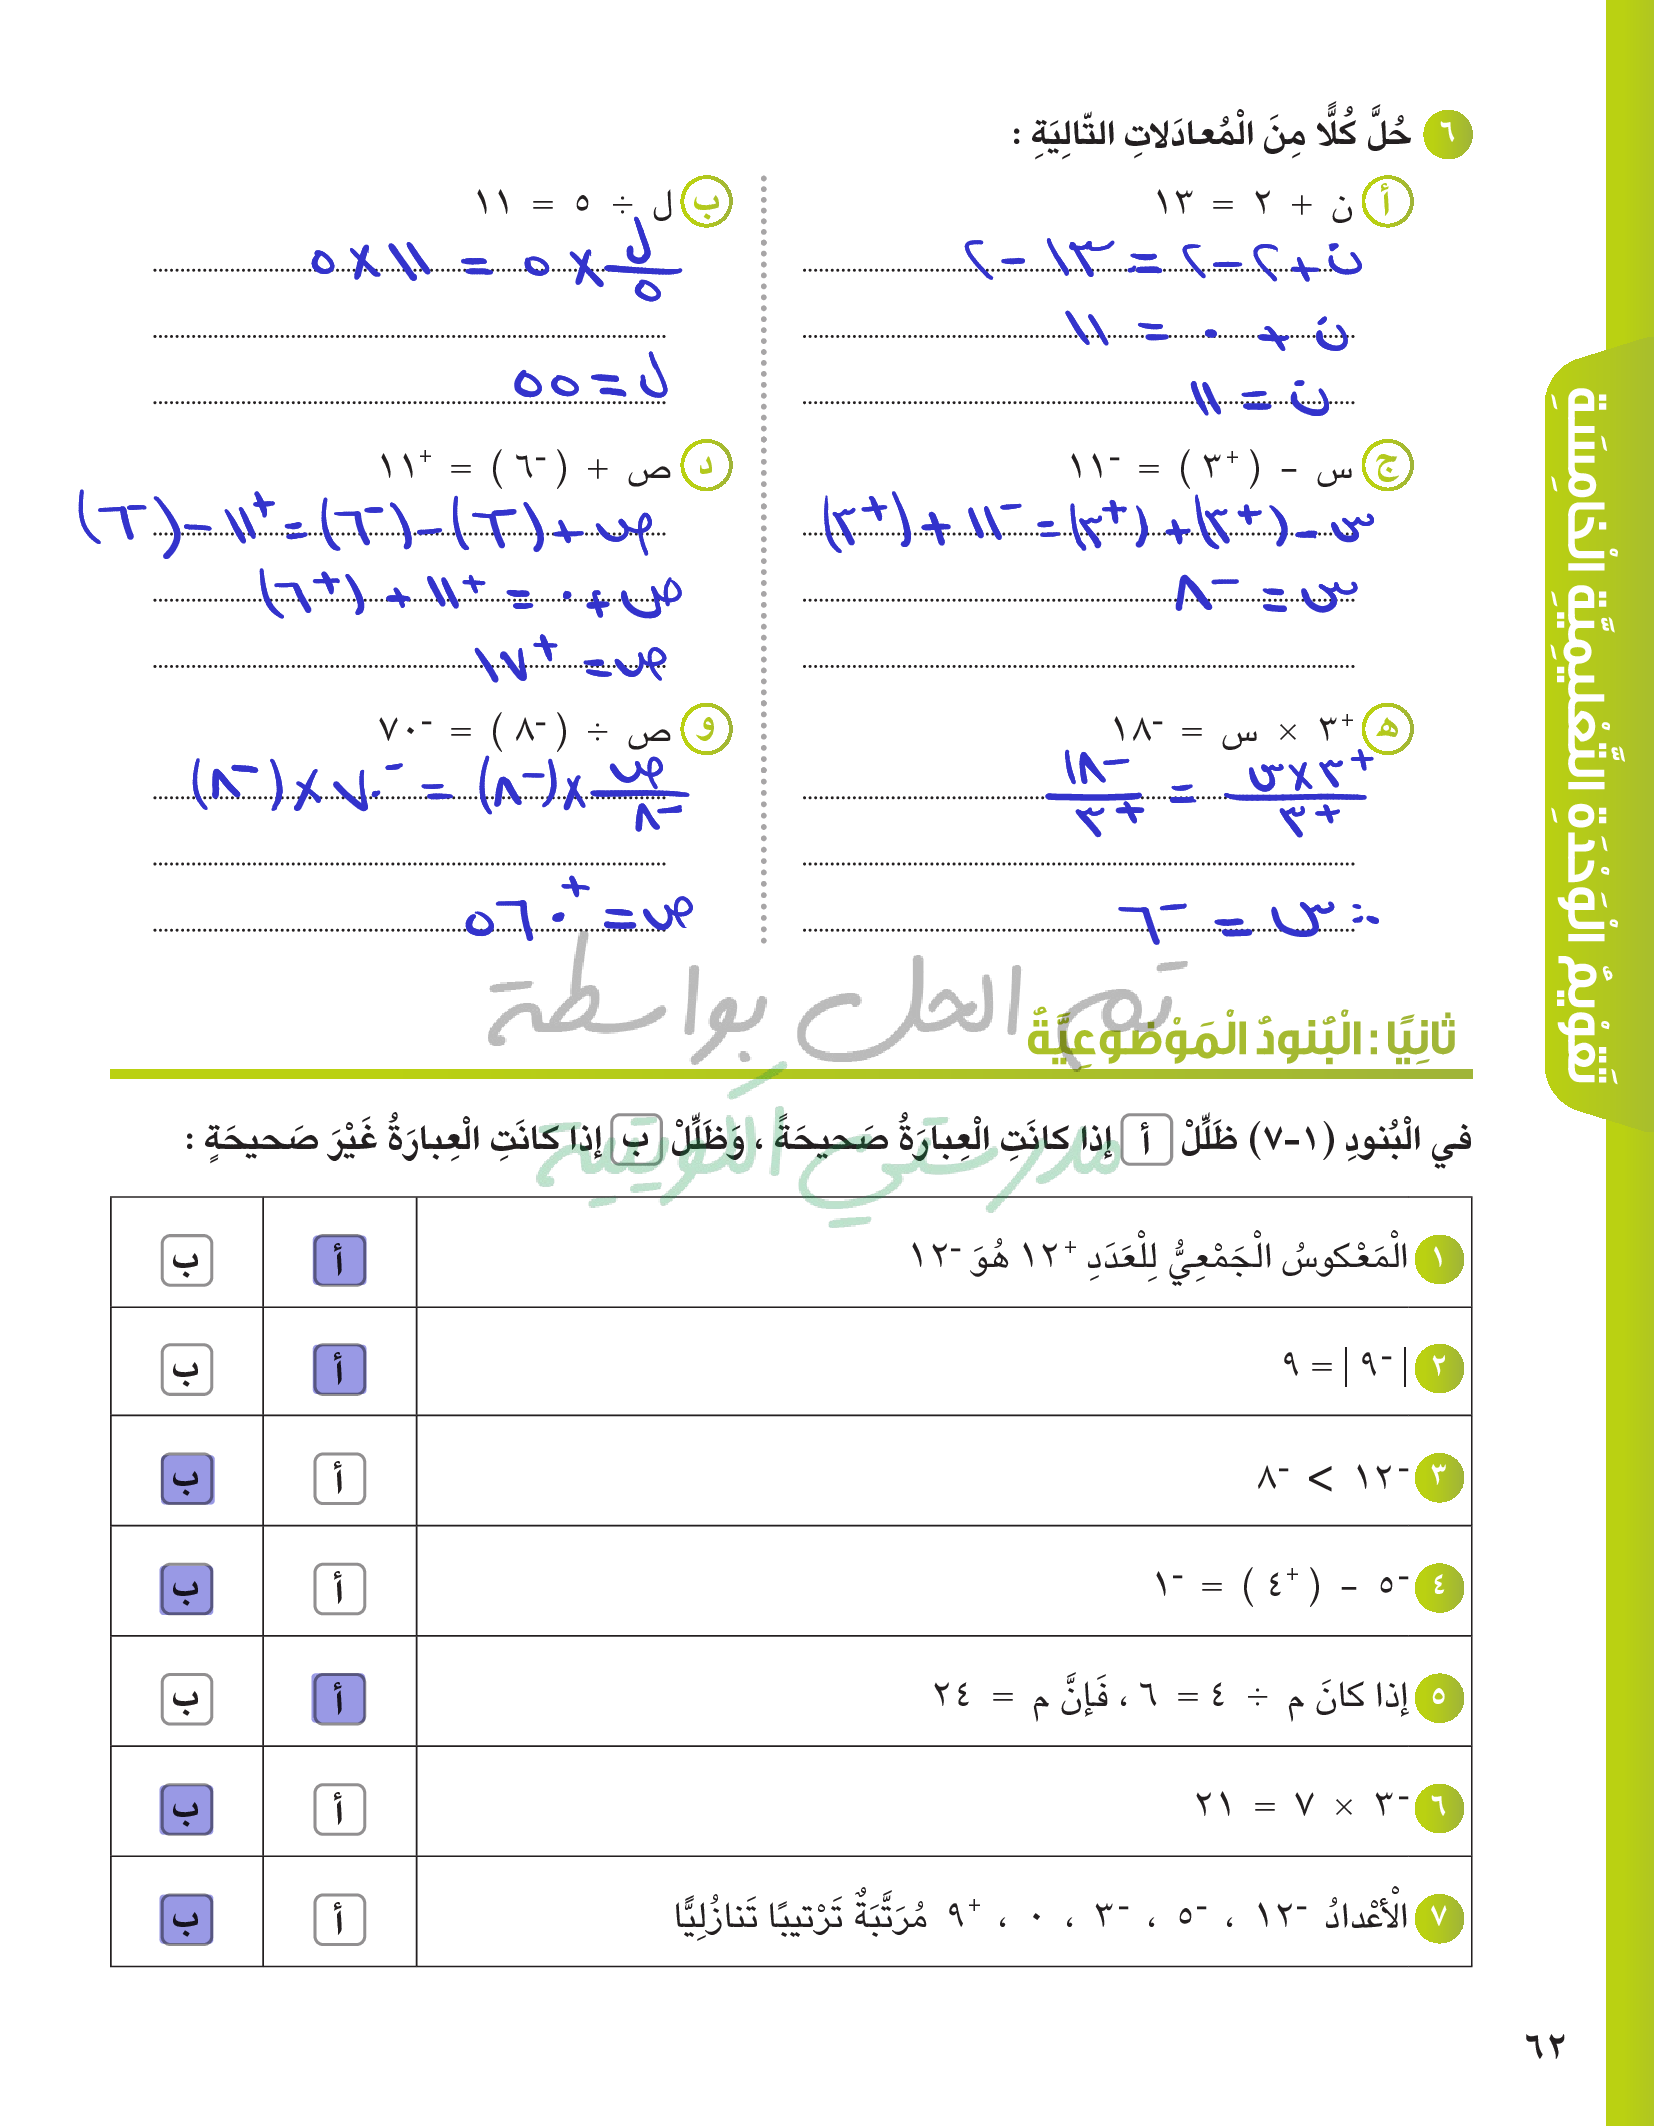 ٦ حُلَّ كُلًّا مِنَ الْمُعادَلاتِ التّالِيَةِ :
أ ن + ٢ = ١٣
ن + ٢ − ٢ = ١٣ − ٢
ن + ٠ = ١١
ن = ١١
ب ل ÷ ٥ = ١١
ل/٥ × ٥ = ١١ × ٥
ل = ٥٥
ج س − (⁺٣) = ⁻١١
س − (⁺٣) + (⁺٣) = ⁻١١ + (⁺٣)
س = ⁻٨
د ص + (⁻٦) = ⁺١١
ص + (⁻٦) − (⁻٦) = ⁺١١ − (⁻٦)
ص + ٠ = ⁺١١ + (⁺٦)
ص = ⁺١٧
ه ⁺٣ × س = ⁻١٨
⁺٣ × س/⁺٣ = ⁻١٨/⁺٣
∴ س = ⁻٦
و ص ÷ (⁻٨) = ⁻٧٠
ص/⁻٨ × (⁻٨) = ⁻٧٠ × (⁻٨)
ص = ⁺٥٦٠
تم الحل بواسطة
مدرستي الكويتية
ثانِيًا : الْبُنودُ الْمَوْضوعِيَّةُ
في الْبُنودِ (١-٧) ظَلِّلْ أ إذا كانَتِ الْعِبارَةُ صَحيحَةً ، وَظَلِّلْ ب إذا كانَتِ الْعِبارَةُ غَيْرَ صَحيحَةٍ :
١ الْمَعْكوسُ الْجَمْعِيُّ لِلْعَدَدِ ⁺١٢ هُوَ ⁻١٢ أ ب
٢ |⁻٩| = ٩ أ ب
٣ ⁻١٢ > ⁻٨ أ ب
٤ ⁻٥ − (⁺٤) = ⁻١ أ ب
٥ إذا كانَ م ÷ ٤ = ٦ ، فَإنَّ م = ٢٤ أ ب
٦ ⁻٣ × ٧ = ٢١ أ ب
٧ الْأعْدادُ ⁻١٢ ، ⁻٥ ، ⁻٣ ، ٠ ، ⁺٩ مُرَتَّبَةٌ تَرْتيبًا تَنازُلِيًّا أ ب
تَقْويمُ الْوَحْدَةِ التَّعْليمِيَّةِ الْخامِسَةِ
٦٢